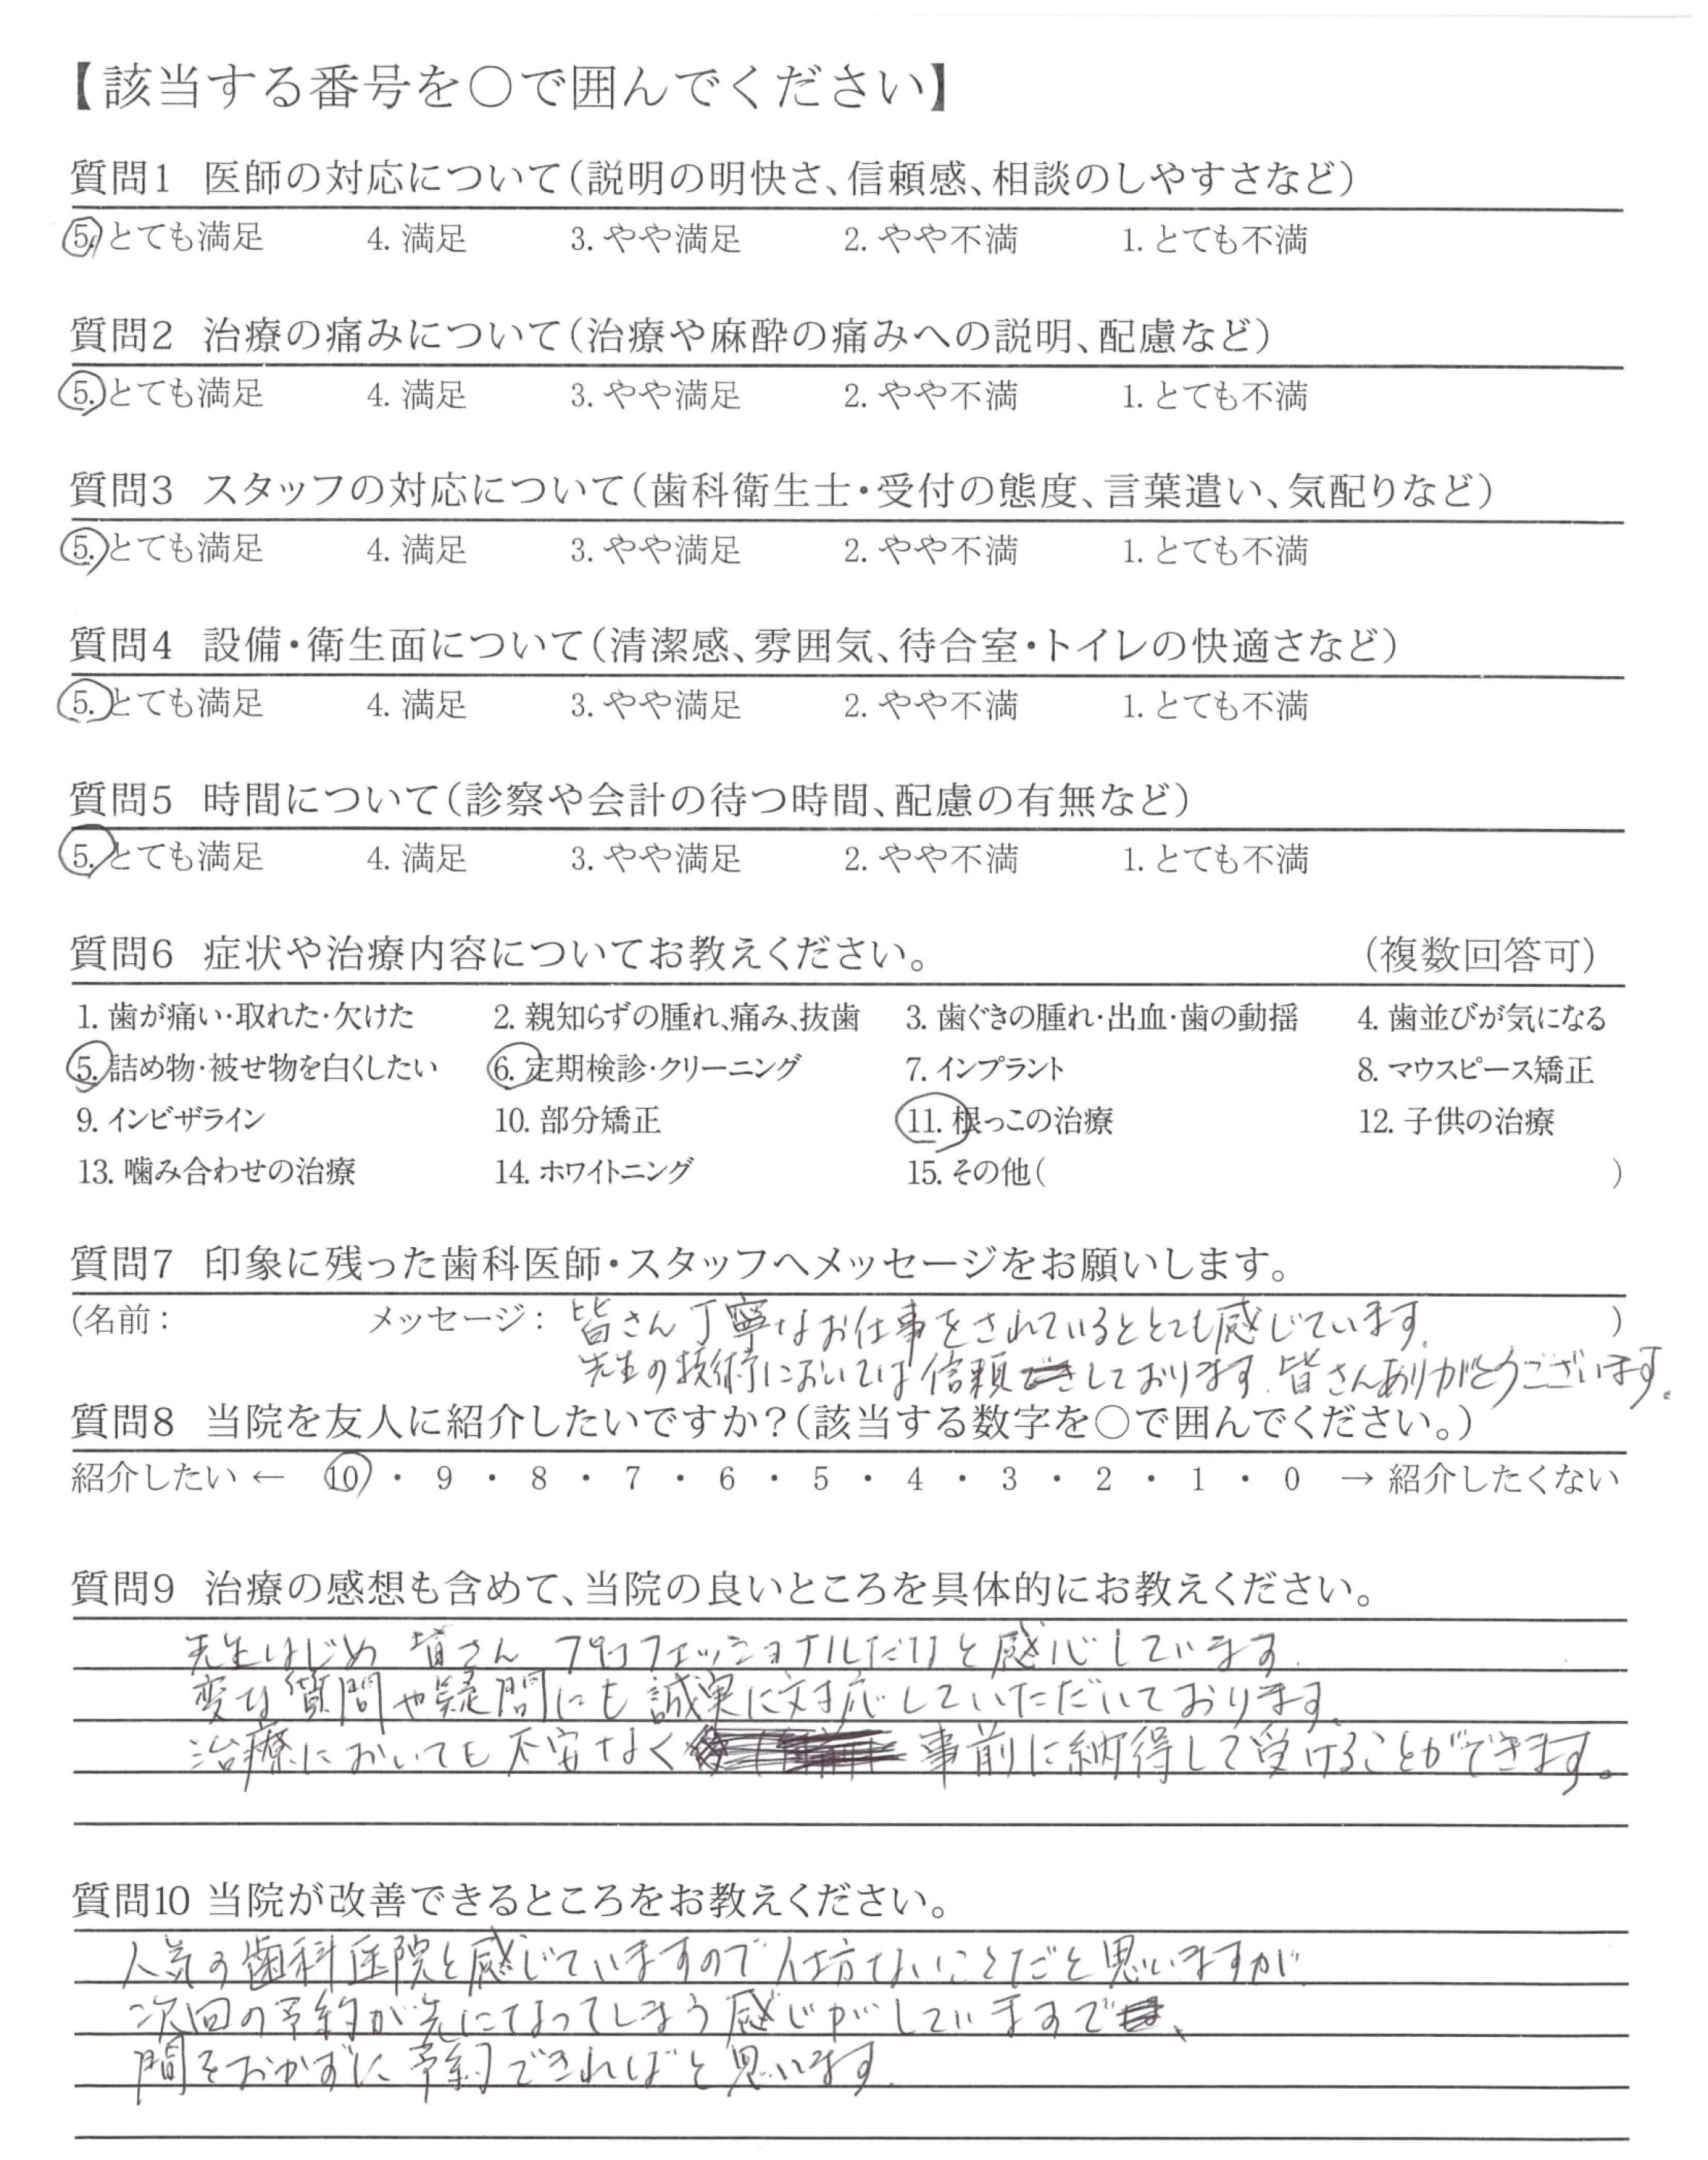 【該当する番号を○で囲んでください】
質問1 医師の対応について(説明の明快さ、信頼感、相談のしやすさなど)
5. とても満足 4. 満足 3. やや満足 2. やや不満 1. とても不満
質問2 治療の痛みについて(治療や麻酔の痛みへの説明、配慮など)
5. とても満足 4. 満足 3. やや満足 2. やや不満 1. とても不満
質問3 スタッフの対応について(歯科衛生士・受付の態度、言葉遣い、気配りなど)
5. とても満足 4. 満足 3. やや満足 2. やや不満 1. とても不満
質問4 設備・衛生面について(清潔感、雰囲気、待合室・トイレの快適さなど)
5. とても満足 4. 満足 3. やや満足 2. やや不満 1. とても不満
質問5 時間について(診察や会計の待つ時間、配慮の有無など)
5. とても満足 4. 満足 3. やや満足 2. やや不満 1. とても不満
質問6 症状や治療内容についてお教えください。 (複数回答可)
1. 歯が痛い・取れた・欠けた 2. 親知らずの腫れ、痛み、抜歯 3. 歯ぐきの腫れ・出血・歯の動揺 4. 歯並びが気になる
5. 詰め物・被せ物を白くしたい 6. 定期検診・クリーニング 7. インプラント 8. マウスピース矯正
9. インビザライン 10. 部分矯正 11. 根っこの治療 12. 子供の治療
13. 噛み合わせの治療 14. ホワイトニング 15. その他( )
質問7 印象に残った歯科医師・スタッフへメッセージをお願いします。
(名前: メッセージ: 皆さん丁寧なお仕事をされているととても感じています. )
先生の技術においては信頼しております. 皆さんありがとうございます。
質問8 当院を友人に紹介したいですか?(該当する数字を○で囲んでください。)
紹介したい ← 10 ・ 9 ・ 8 ・ 7 ・ 6 ・ 5 ・ 4 ・ 3 ・ 2 ・ 1 ・ 0 → 紹介したくない
質問9 治療の感想も含めて、当院の良いところを具体的にお教えください。
先生はじめ 皆さん プロフェッショナルだなと感心しています.
変な質問や疑問にも誠実に対応していただいております.
治療においても不安なく 事前に納得して受けることができます。
質問10 当院が改善できるところをお教えください。
人気の歯科医院と感じていますので仕方ないことだと思いますが
次回の予約が先になってしまう感じがしていますで、
間をおかずに予約できればと思います.